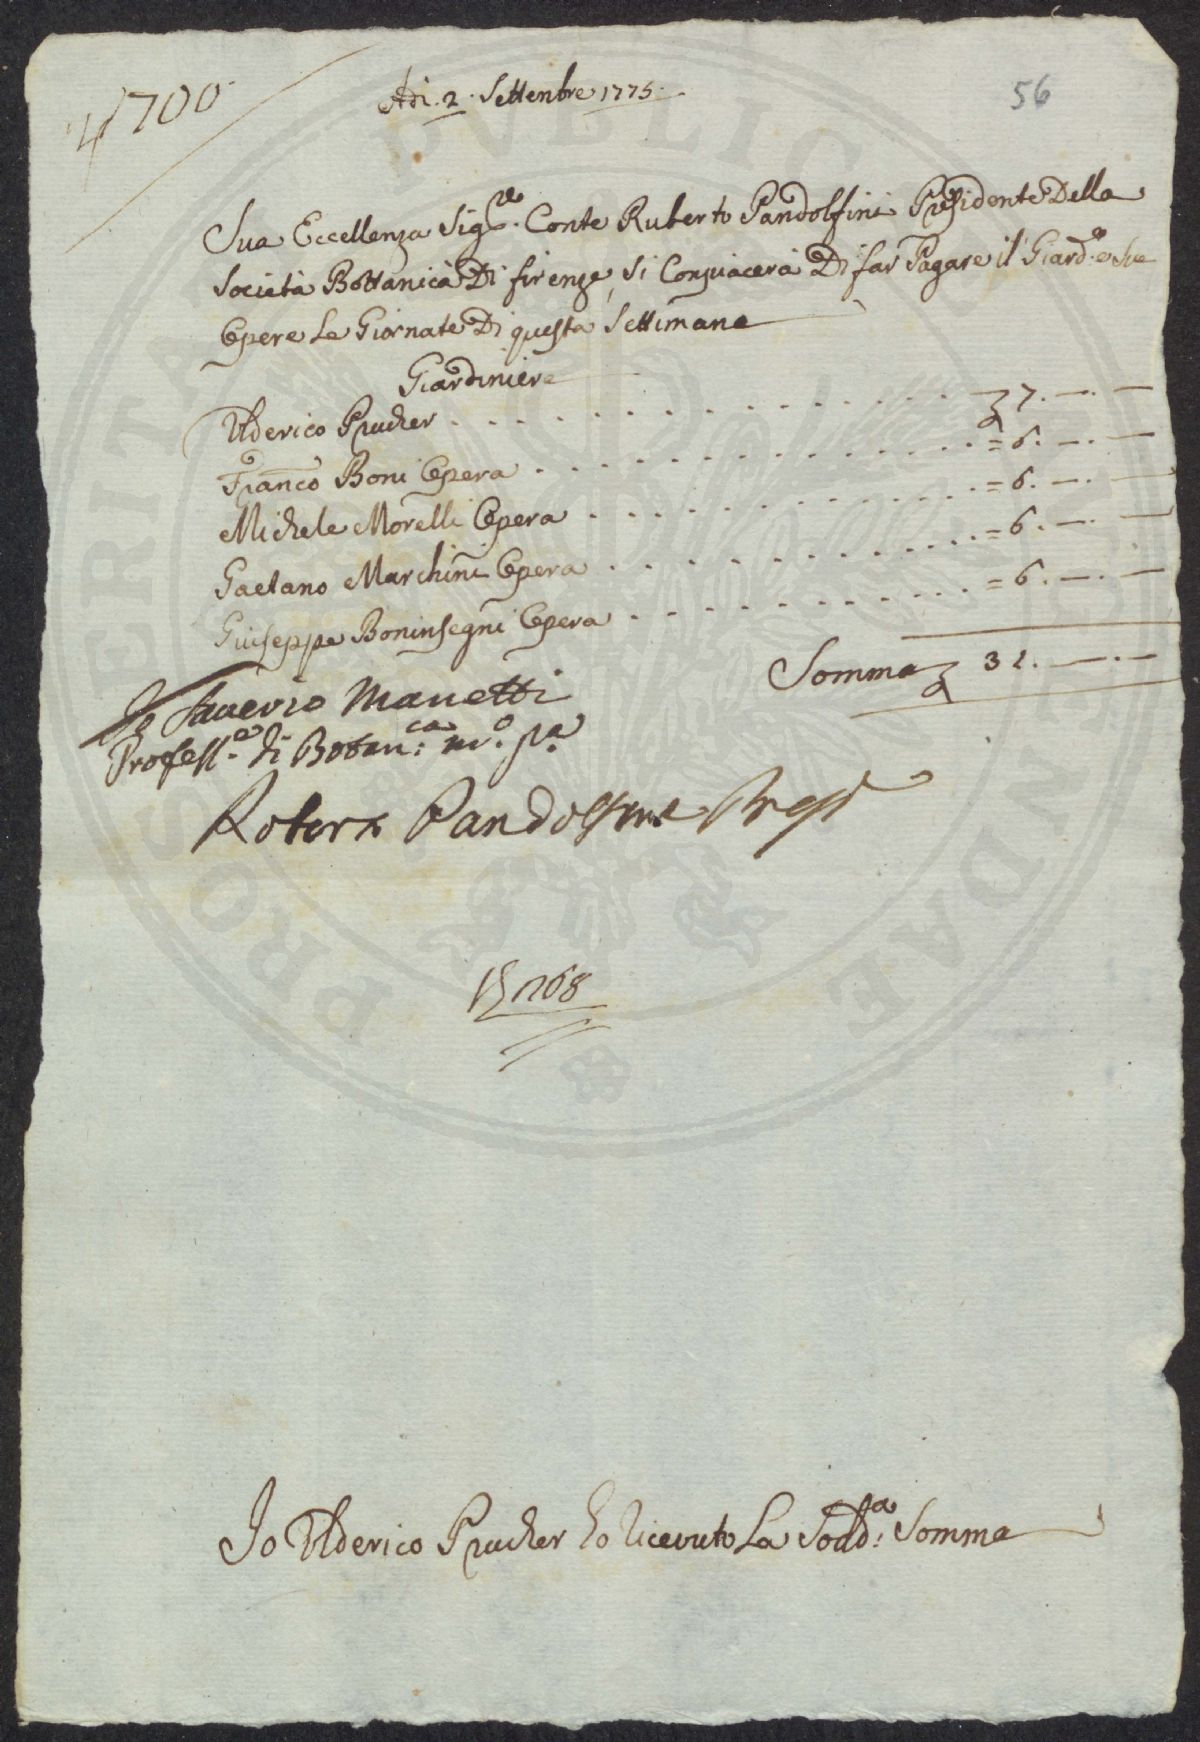 700
Adi. 2. Settenbre 1775.
56
Sua Eccellenza Sig.re Conte Ruberto Pandolfini Presidente Della
Società Bottanica Di firenze, Si Conpiacerà Di far Pagare il Giard.e e Sue
Opere Le Giornate Di questa Settimana
Giardiniere
Ulderico Prucher . . . . . . . . . . . 7. —. —
Franco Boni Opera . . . . . . . . . . = 6. —. —
Michele Morelli Opera . . . . . . . . . = 6. —. —
Gaetano Marchini Opera . . . . . . . . = 6. —. —
Giuseppe Boninsegni Opera . . . . . . . . = 6. —. —
Somma 31. —. —
Io Saverio Manetti
Profess.e di Botan:ca m.o p.a
Roberto Pandolfini Presd
1768
Io Ulderico Prucher ho ricevuto La Sodd:a Somma
PROSPERITATI PVBLICAE